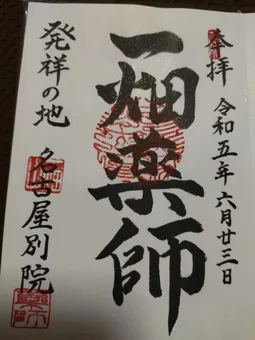 奉拝
令和五年六月廿三日
一畑薬師
発祥の地
名古屋別院